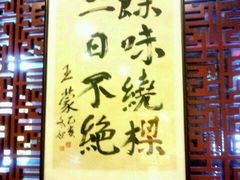 餘味繞樑
三日不絕
王蒙